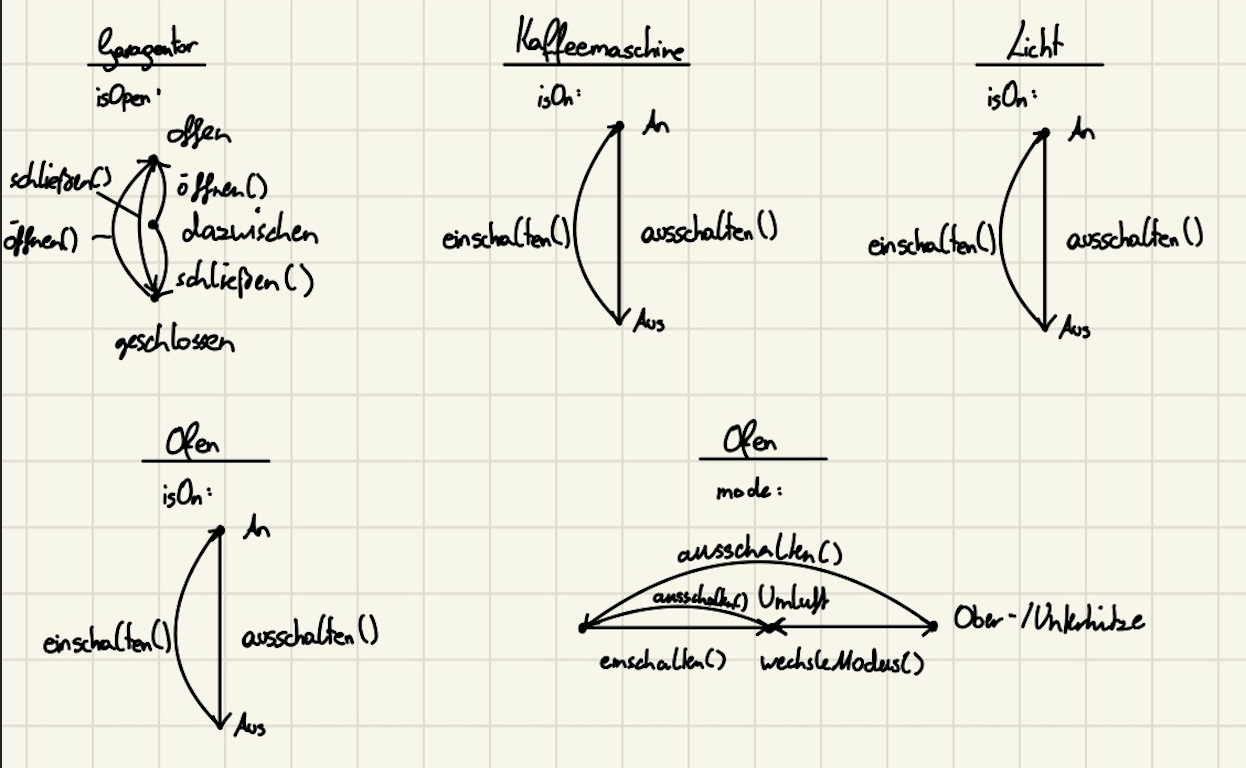 Garagentor
isOpen:
offen
schließen()
öffnen()
öffnen()
dazwischen
schließen()
geschlossen
Kaffeemaschine
isOn:
An
einschalten()
ausschalten()
Aus
Licht
isOn:
An
einschalten()
ausschalten()
Aus
Ofen
isOn:
An
einschalten()
ausschalten()
Aus
Ofen
mode:
ausschalten()
ausschalten() Umluft
Ober-/Unterhitze
einschalten() wechsleModus()